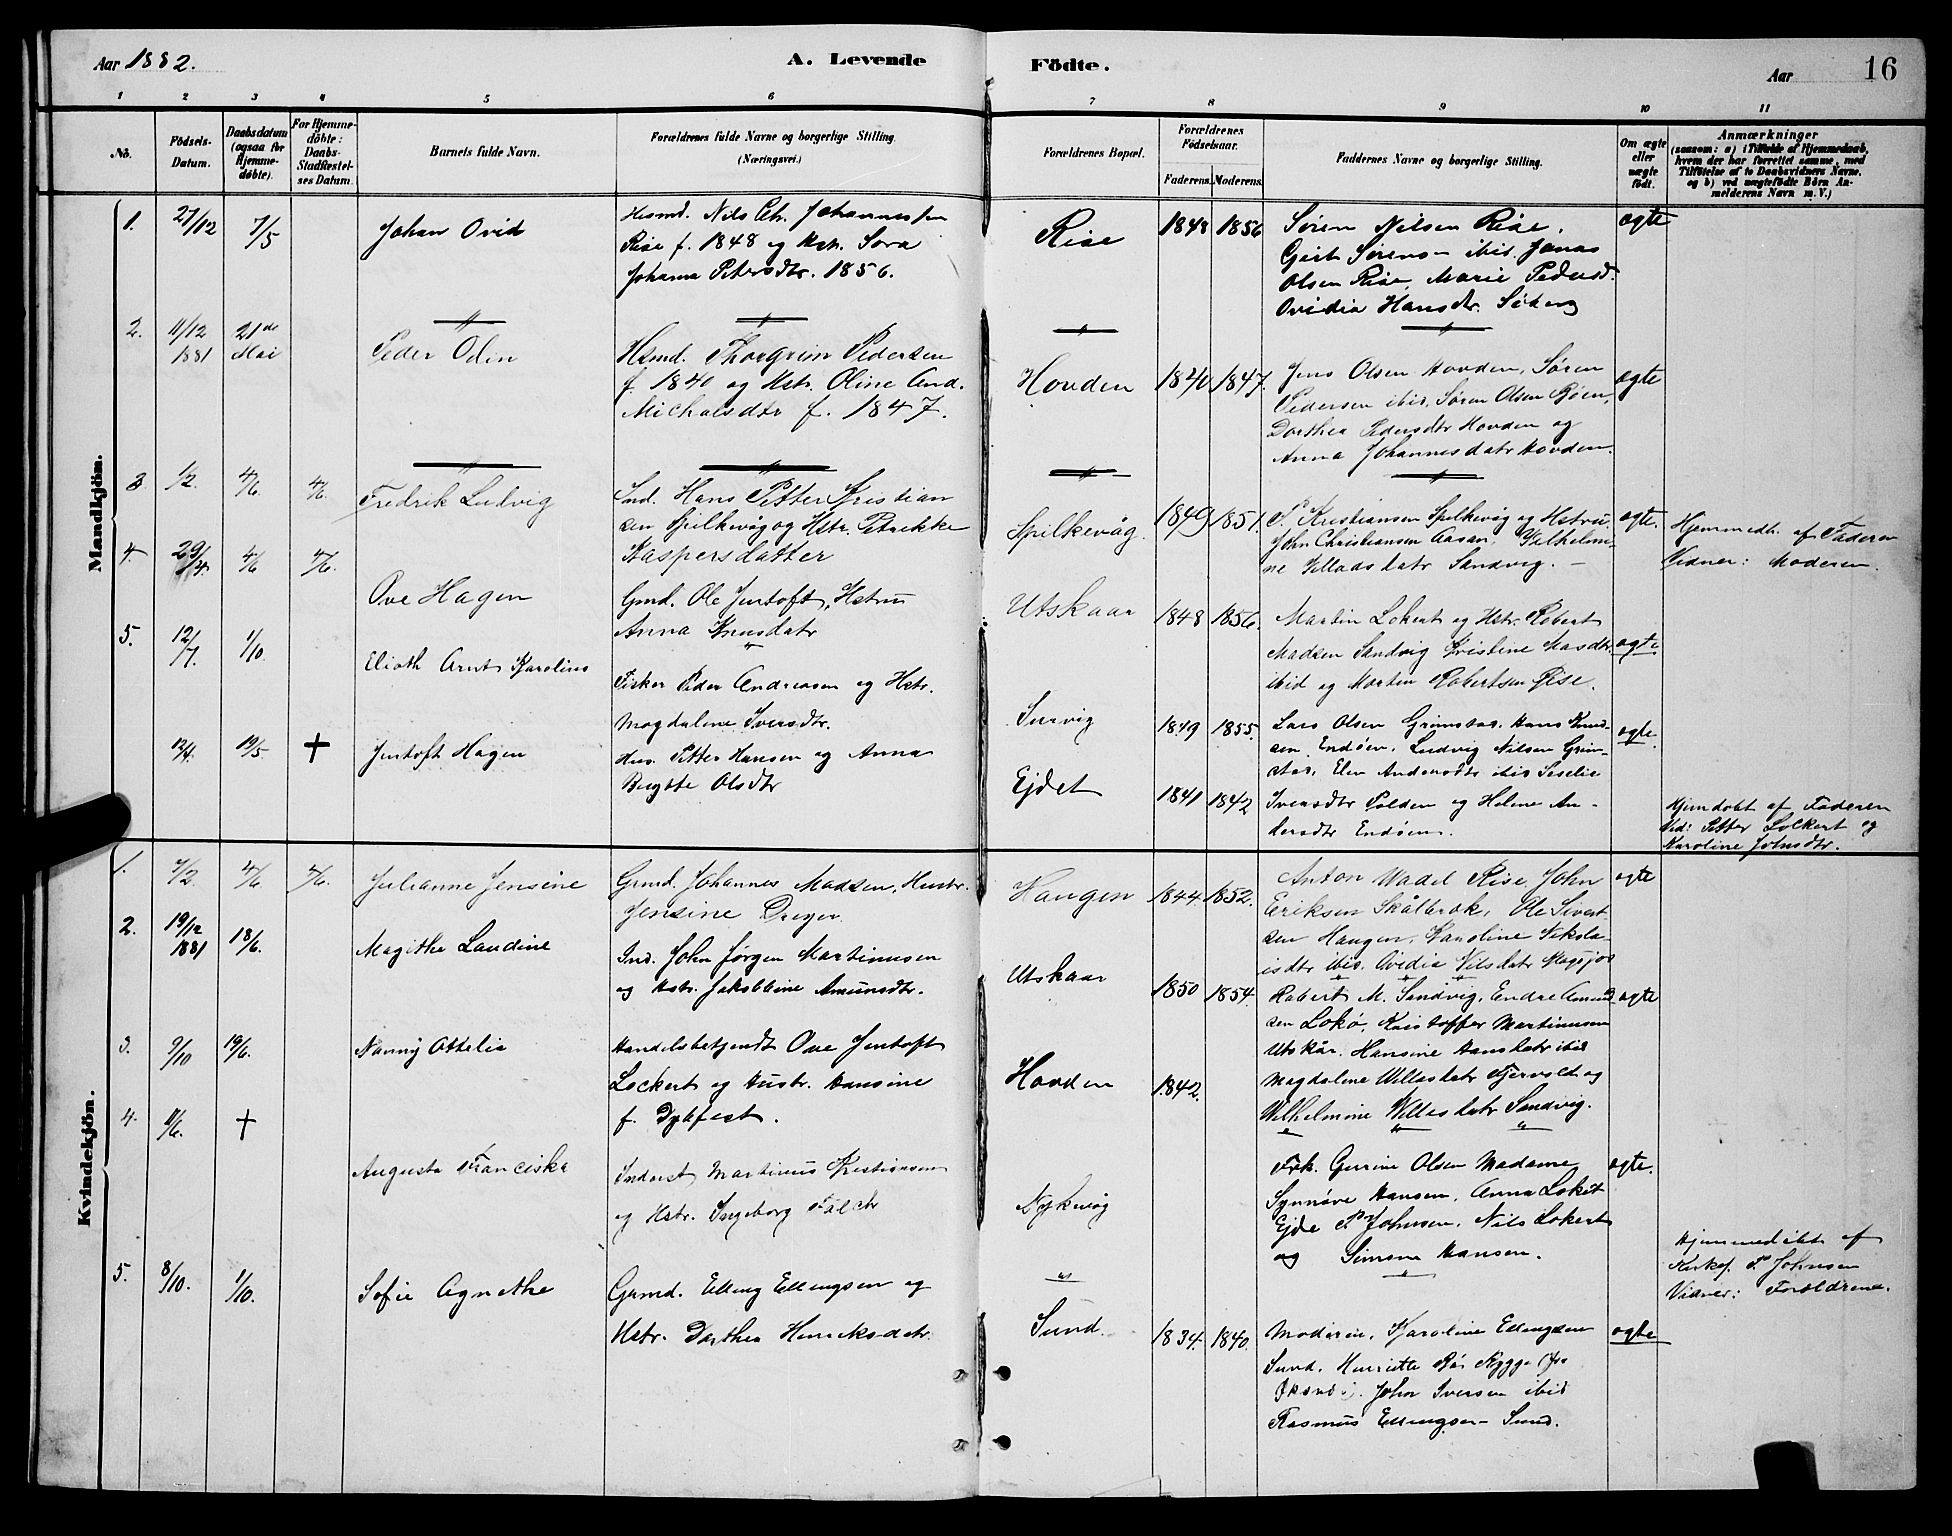 Aar 1882.
A. Levende Födte.
Aar
16
1 2 3 4 5 6 7 8 9 10 11
No.
Födsels-
Datum.
Daabsdatum
(ogsaa for
Hjemme-
döbte).
For Hjemme-
döbte:
Daabs-
Stadfæstel-
ses Datum.
Barnets fulde Navn.
Forældrenes fulde Navne og borgerlige Stilling.
(Næringsvei.)
Forældrenes Bopæl.
Forældrenes
Födselsaar.
Faderens. Moderens.
Faddernes Navne og borgerlige Stilling.
Om ægte
eller
uægte
födt.
Anmærkninger
(saasom: a) i Tilfælde af Hjemmedaab,
hvem der har forrettet samme, med
Tilföielse af to Daabsvidners Navne,
og b) ved uægtefödte Börn An-
melderens Navn m. V.)
Mandkjön.
1. 27/12 7/5
Johan Ovid
Husmd. Nils Chr. Johannessen
Rise f. 1848 og Hstr. Sara
Johanna Petersdtr. 1856.
Rise 1848 1856
Sören Nilsen Rise,
Gjert Sörens- ibid. Jonas
Olsen Rise, Marie Pedersd.
Ovidia Hansdtr. Söberg
ægte
2. 11/12 21de
1881 Mai
Peder Odin
Hsmd. Thorgrim Pedersen
f. 1840 og Hstr. Oline And.
Michalsdtr f. 1847.
Hovden 1840 1847.
Jens Olsen Hovden, Søren
Pedersen ibid, Søren Olsen Røen,
Dorthea Pedersdtr Hovden og
Anna Johannesdatr Hovden.
ægte
3. 1/2. 4/6 4/6.
Fredrik Ludvig
Ind. Hans Petter Kristian
sen Spilkevåg og Hstr. Petrikke
Kaspersdatter
Spilkevåg. 1849 1851.
P. Kristiansen Spilkevåg og Hstru
John Christiansen Aasan, Vilhelmi-
ne Villadsdatr Sandvig. -
ægte.
Hjemmedb. af Faderen
Vidner: Moderen.
4. 29/4. 4/6 4/6.
Ove Hagen
Gmd. Ole Jentoft, Hstru
Anna Knusdatr
Utskaar 1848 1856.
Martin Lokert og Hstr. Robert
Madsen Sandvig Kristine Masdtr.
ibid og Morten Robertsen Rise.
ægte
5. 12/7. 1/10.
Elioth Arnt Karolius
Fisker Peder Andreasen og Hstr.
Magdalene Iversdtr.
Survig 1849 1855.
Lars Olsen Grimstad, Hans Knud-
sen Endöen, Ludvig Nilsen Grim-
stad, Elen Andersdtr ibid Seselie
Iversdtr Polden og Helene An-
dersdtr Endöen.
ægte.
12/4. 19/5 +
Jentoft Hagen
Hus. Petter Hansen og Anna
Birgtte Olsdtr
Ejdet 1841 1842
Hjemdöbt af Faderen
Vid: Petter Lockert og
Karoline Johnsdtr.
Kvindekjön.
1. 7/2 4/6 4/6.
Julianne Jensine
Grmd. Johannes Madsen, Hustr.
Jensine Dreyer
Haugen 1844 1852.
Anton Wadel Rise John
Eriksen Skålbrok, Ole Sivert-
sen Haugen, Karoline Nikola-
isdtr ibid. Ovidia Nilsdatr
ægte
2. 19/12
1881 18/6.
Magitha Laudine
Ind. John Jørgen Martinusen
og Hstr. Jakobbine Amunsdtr.
Utskaar 1850 1854.
Robert M. Sandvig, Endre Amund
sen Lokø, Kristoffer Martinusen
Utskår. Hansine Hansdatr ibid
Magdalene Willasdatr Kjervold og
Wilhelmine Villasdatr Sandvig.
ægte
3. 9/10 19/6.
Nanny Ottelie
Handelsbetjendt Ove Jentoft
Lockert og Hustr. Hansine
f. Dybfest.
Hovden 1842.
Frk. Gurine Olsen Madame
Synnöve Hansen, Anna Lokert
Ejde P Johnsen, Nils Lokert
og Simone Hansen.
ægte.
4. 11/6. +
Augusta Franciska
Inderst Martinus Kristiansen
og Hstr. Ingeborg Falch
Nykvåg
Hjemmedöbt af
Kirkes. P Johnsen
Vidner: Forældrene.
5. 8/10. 1/10.
Sofie Agnethe
Grmd. Elling Ellingsen og
Hstr. Dorthea Henriksdatr.
Sund. 1834. 1840.
Moderen, Karoline Ellingsen
Sund, Henriette Rø. Nygge
John Iversen ibid
Rasmus Ellingsen Sund.
ægte